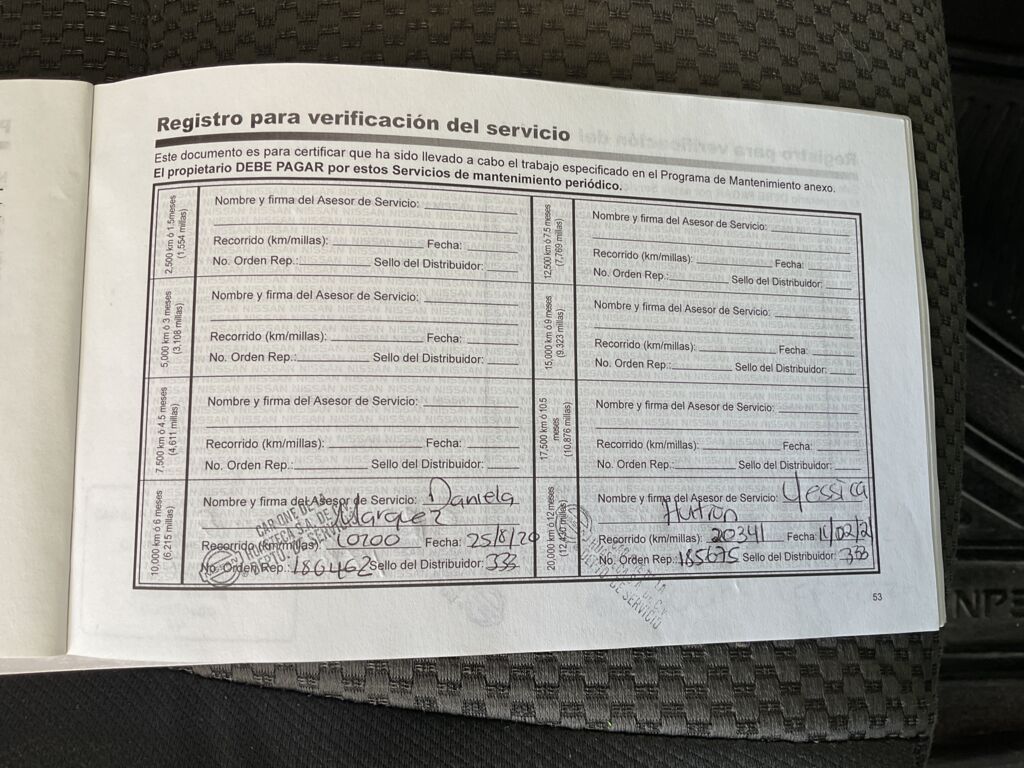 Registro para verificación del servicio
Este documento es para certificar que ha sido llevado a cabo el trabajo especificado en el Programa de Mantenimiento anexo.
El propietario DEBE PAGAR por estos Servicios de mantenimiento periódico.
2,500 km ó 1.5 meses
(1,554 millas)
Nombre y firma del Asesor de Servicio:
Recorrido (km/millas): Fecha:
No. Orden Rep.: Sello del Distribuidor:
5,000 km ó 3 meses
(3,108 millas)
Nombre y firma del Asesor de Servicio:
Recorrido (km/millas): Fecha:
No. Orden Rep.: Sello del Distribuidor:
7,500 km ó 4.5 meses
(4,611 millas)
Nombre y firma del Asesor de Servicio:
Recorrido (km/millas): Fecha:
No. Orden Rep.: Sello del Distribuidor:
10,000 km ó 6 meses
(6,215 millas)
Nombre y firma del Asesor de Servicio: Daniela
Marquez
Recorrido (km/millas): 10200 Fecha: 25/8/20
No. Orden Rep.: 180462 Sello del Distribuidor: 333
12,500 km ó 7.5 meses
(7,769 millas)
Nombre y firma del Asesor de Servicio:
Recorrido (km/millas): Fecha:
No. Orden Rep.: Sello del Distribuidor:
15,000 km ó 9 meses
(9,323 millas)
Nombre y firma del Asesor de Servicio:
Recorrido (km/millas): Fecha:
No. Orden Rep.: Sello del Distribuidor:
17,500 km ó 10.5
meses
(10,876 millas)
Nombre y firma del Asesor de Servicio:
Recorrido (km/millas): Fecha:
No. Orden Rep.: Sello del Distribuidor:
20,000 km ó 12 meses
(12,430 millas)
Nombre y firma del Asesor de Servicio: Yessica
Recorrido (km/millas): 20341 Fecha:
No. Orden Rep.: 185675 Sello del Distribuidor:
DE SERVICIO
53